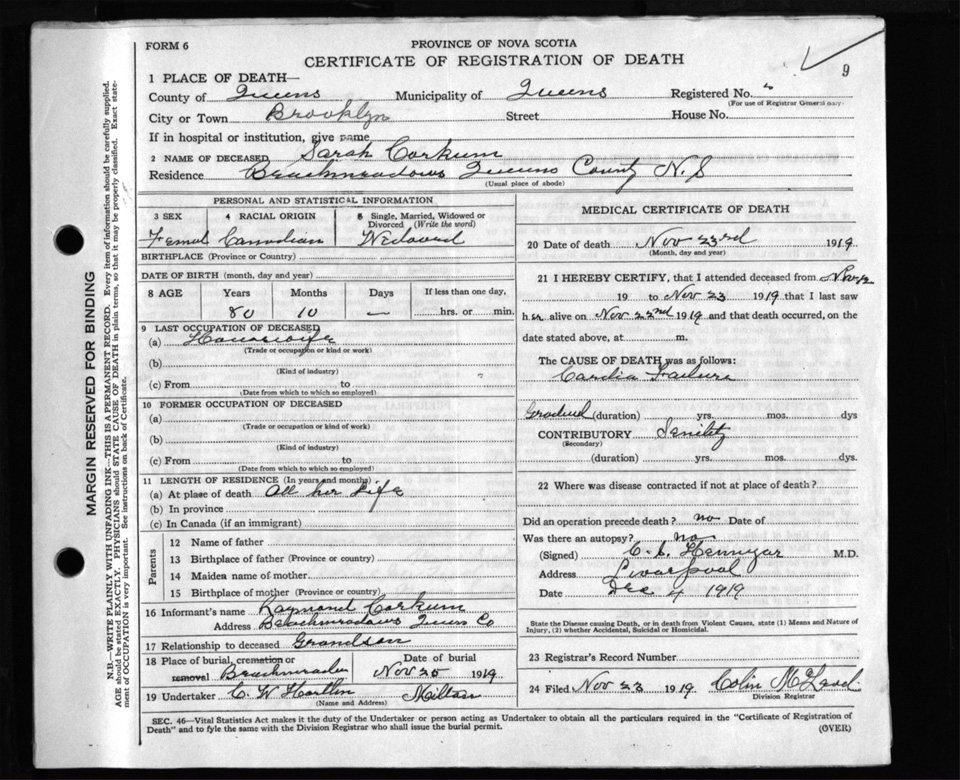 FORM 6
PROVINCE OF NOVA SCOTIA
CERTIFICATE OF REGISTRATION OF DEATH
9
1 PLACE OF DEATH—
County of Queens Municipality of Queens Registered No.
(For use of Registrar General only)
City or Town Brooklyn Street House No.
If in hospital or institution, give name
2 NAME OF DECEASED Sarah Corkum
Residence Beachmeadows Queens County N.S
(Usual place of abode)
MARGIN RESERVED FOR BINDING
N.B.—WRITE PLAINLY WITH UNFADING INK—THIS IS A PERMANENT RECORD. Every item of information should be carefully supplied.
AGE should be stated EXACTLY. PHYSICIANS should STATE CAUSE OF DEATH in plain terms, so that it may be properly classified. Exact statement of OCCUPATION is very important. See instructions on back of Certificate.
PERSONAL AND STATISTICAL INFORMATION
3 SEX 4 RACIAL ORIGIN 5 Single, Married, Widowed or
Divorced (Write the word)
Femal Canadian Widowed
BIRTHPLACE (Province or Country)
DATE OF BIRTH (month, day and year)
8 AGE Years Months Days If less than one day,
80 10 — hrs. or min.
9 LAST OCCUPATION OF DECEASED
(a) Housewife
(Trade or occupation or kind or work)
(b)
(Kind of industry)
(c) From to
(Date from which to which so employed)
10 FORMER OCCUPATION OF DECEASED
(a)
(Trade or occupation or kind of work)
(b)
(Kind of industry)
(c) From to
(Date from which to which so employed)
11 LENGTH OF RESIDENCE (In years and months)
(a) At place of death All her Life
(b) In province
(c) In Canada (if an immigrant)
Parents
12 Name of father
13 Birthplace of father (Province or country)
14 Maiden name of mother
15 Birthplace of mother (Province or country)
16 Informant's name Raymond Corkum
Address Beachmeadows Queens Co
17 Relationship to deceased Grandson
18 Place of burial, cremation or Date of burial
removal Beachmeadows Nov 25 1919
19 Undertaker C. W Hartlen Milton
(Name and Address)
MEDICAL CERTIFICATE OF DEATH
20 Date of death Nov 23rd 1919
(Month, day and year)
21 I HEREBY CERTIFY, that I attended deceased from Nov 12
19 to Nov 23 1919 that I last saw
her alive on Nov 22nd 1919 and that death occurred, on the
date stated above, at m.
The CAUSE OF DEATH was as follows:
Cardia Failure
Gradual (duration) yrs. mos. dys
CONTRIBUTORY Senility
(Secondary)
(duration) yrs. mos. dys.
22 Where was disease contracted if not at place of death?
Did an operation precede death? no Date of
Was there an autopsy? no
(Signed) Hennigar M.D.
Address Liverpool
Date Dec 4 1919
State the Disease causing Death, or in death from Violent Causes, state (1) Means and Nature of
Injury, (2) whether Accidental, Suicidal or Homicidal.
23 Registrar's Record Number
24 Filed Nov 23 1919 Colin McLeod
Division Registrar
SEC. 46—Vital Statistics Act makes it the duty of the Undertaker or person acting as Undertaker to obtain all the particulars required in the "Certificate of Registration of
Death" and to fyle the same with the Division Registrar who shall issue the burial permit.
(OVER)